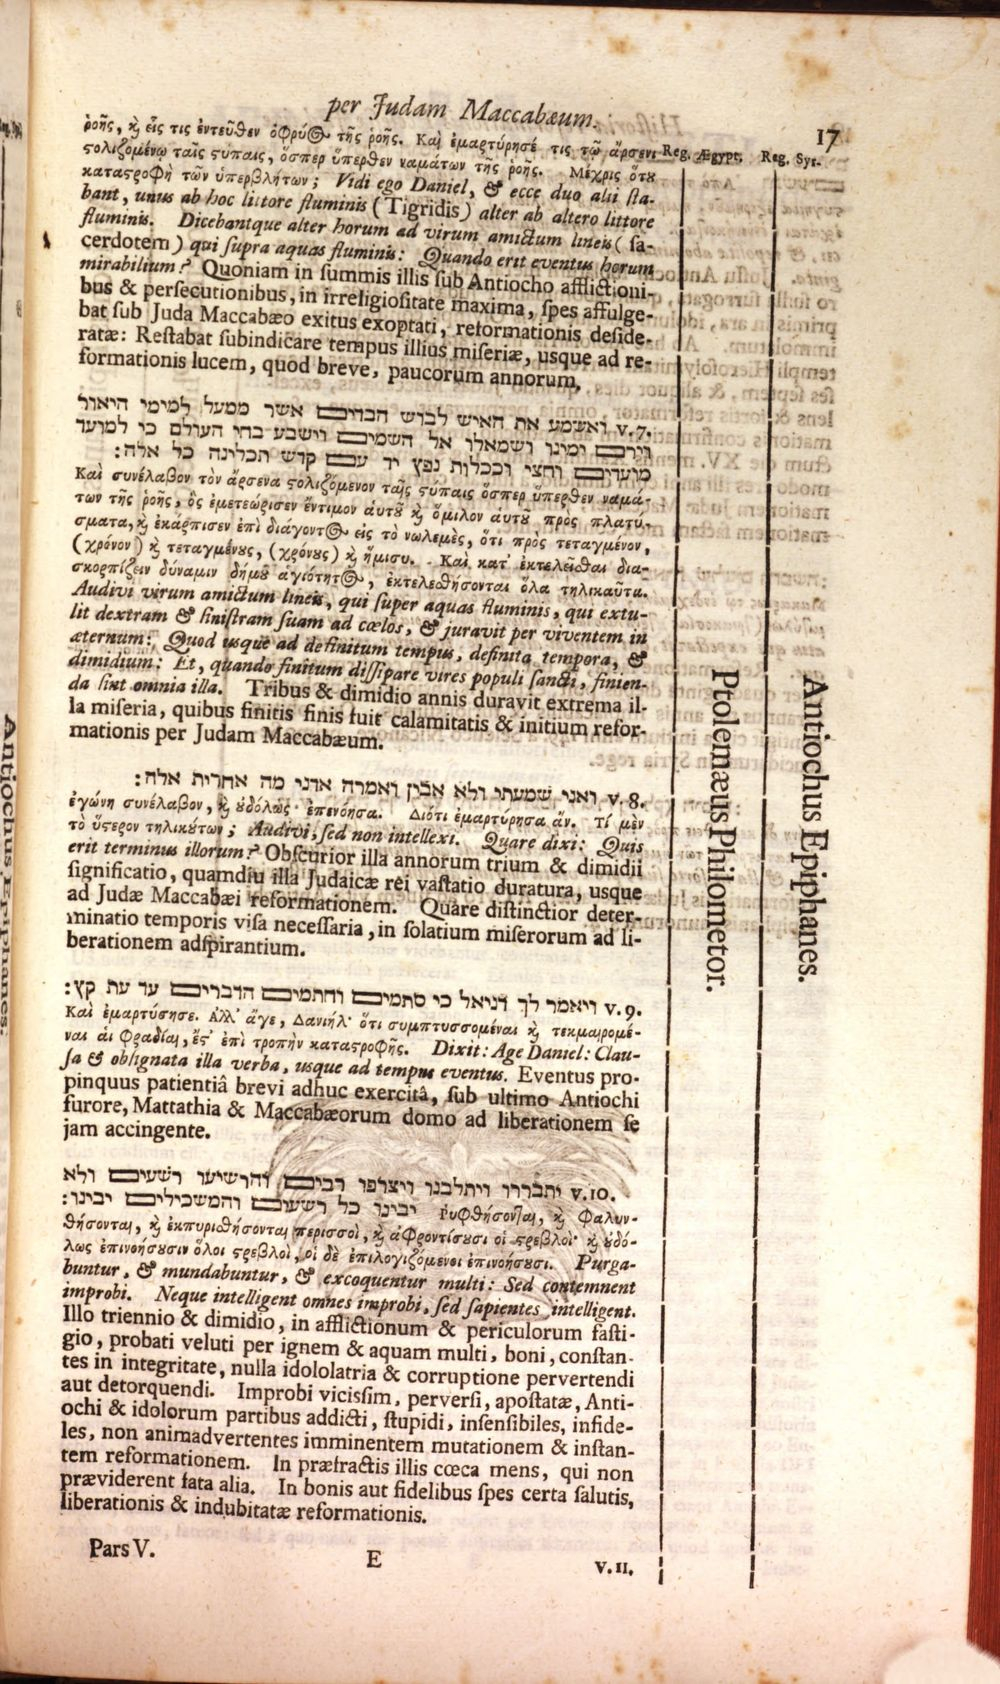 per Judam Maccabæum.
17
Reg. Ægypt.
Reg. Syr.
ῥοῆς, ϗ̀ εἷς τις ἐντεῦθεν ὀφρύ⊙ τῆς ῥοῆς. Καὶ ἐμαρτύρησέ τις τῷ ἄρσενι
ϛολιζομένῳ ταῖς ϛύπαις, ὅσπερ ὕπερθεν ναμάτων τῆς ῥοῆς. Μέχρις ὅτȣ
καταϛροφὴ τῶν ὑπερβλήτων; Vidi ego Daniel, & ecce duo alii ſta-
bant, unus ab hoc littore fluminis (Tigridis) alter ab altero littore
fluminis. Dicebantque alter horum ad virum amictum lineis (ſa-
cerdotem) qui ſupra aquas fluminis: Quando erit eventus horum
mirabilium? Quoniam in ſummis illis ſub Antiocho afflictioni-
bus & perſecutionibus, in irreligioſitate maxima, ſpes affulge-
bat ſub Juda Maccabæo exitus exoptati, reformationis deſide-
ratæ: Reſtabat ſubindicare tempus illius miſeriæ, usque ad re-
formationis lucem, quod breve, paucorum annorum.
v.7. ואשמע את האיש לבוש הבדים אשר ממעל למימי היאור
וירם ימינו ושמאלו אל השמים וישבע בחי העולם כי למועד
מועדים וחצי וככלות נפץ יד עם קדש תכלינה כל אלה:
Καὶ συνέλαβον τὸν ἄρσενα ϛολιζόμενον ταῖς ϛύπαις ὅσπερ ὕπερθεν ναμά-
των τῆς ῥοῆς, ὃς ἐμετεώρισεν ἔντιμον ἁυτȣ̃ ϗ̀ ὅμιλον ἁυτȣ̃ πρὸς πλατύ-
σματα, ϗ̀ ἐκάρπισεν ἐπὶ διάγοντ⊙ εἰς τὸ νωλεμὲς, ὅτι πρὸς τεταγμένον,
(χρόνον) ϗ̀ τεταγμένȣς, (χρόνȣς) ϗ̀ ἥμισυ. Καὶ κατ' ἐκτελεῖσθαι δια-
σκορπίζειν δύναμιν δήμȣ ἁγιότητ⊙, ἐκτελεσθήσονται ὅλα τηλικαῦτα.
Audivi virum amictum lineis, qui ſuper aquas fluminis, qui extu-
lit dextram & ſiniſtram ſuam ad cœlos, & juravit per viventem in
æternum: Quod usque ad definitum tempus, definita tempora, &
dimidium: Et, quando finitum diſſipare vires populi ſancti, finien-
da ſint omnia illa. Tribus & dimidio annis duravit extrema il-
la miſeria, quibus finitis finis fuit calamitatis & initium refor-
mationis per Judam Maccabæum.
v.8. ואני שמעתי ולא אבין ואמרה אדני מה אחרית אלה:
ἐγώνη συνέλαβον, ϗ̀ ȣ̓δόλως ἐπενόησα. Διότι ἐμαρτύρησα ἄν. Τί μὲν
τὸ ὕϛερον τηλικȣ́των; Audivi, ſed non intellexi. Quare dixi: Quis
erit terminus illorum? Obſcurior illa annorum trium & dimidii
ſignificatio, quamdiu illa Judaicæ rei vaſtatio duratura, usque
ad Judæ Maccabæi reformationem. Quare diſtinctior deter-
minatio temporis viſa neceſſaria, in ſolatium miſerorum ad li-
berationem adſpirantium.
v.9. ויאמר לך דניאל כי סתמים וחתמים הדברים עד עת קץ:
Καὶ ἐμαρτύσησε. Ἀλλ' ἄγε, Δανιὴλ· ὅτι συμπτυσσομέναι ϗ̀ τεκμαιρομέ-
ναι αἱ Φραδίαι, ἕς' ἐπὶ τροπὴν καταϛροφῆς. Dixit: Age Daniel: Clau-
ſa & obſignata illa verba, usque ad tempus eventus. Eventus pro-
pinquus patientiâ brevi adhuc exercitâ, ſub ultimo Antiochi
furore, Mattathia & Maccabæorum domo ad liberationem ſe
jam accingente.
v.10. יתבררו ויתלבנו ויצרפו רבים והרשיעו רשעים ולא
יבינו כל רשעים והמשכילים יבינו: Ρυφθήσονται, ϗ̀ Φαλυν-
θήσονται, ϗ̀ ἐκπυριωθήσονται περισσοὶ, ϗ̀ ἀφροντίσȣσι οἱ ϛρεβλοὶ· ϗ̀ ȣ̓δό-
λως ἐπινοήσȣσιν ὅλοι ϛρεβλοὶ, οἱ δὲ ἐπιλογιζόμενοι ἐπινοήσȣσι. Purga-
buntur, & mundabuntur, & excoquentur multi: Sed contemnent
improbi. Neque intelligent omnes improbi, ſed ſapientes intelligent.
Illo triennio & dimidio, in afflictionum & periculorum faſti-
gio, probati veluti per ignem & aquam multi, boni, conſtan-
tes in integritate, nulla idololatria & corruptione pervertendi
aut detorquendi. Improbi viciſſim, perverſi, apoſtatæ, Anti-
ochi & idolorum partibus addicti, ſtupidi, inſenſibiles, infide-
les, non animadvertentes imminentem mutationem & inſtan-
tem reformationem. In præfractis illis cœca mens, qui non
præviderent fata alia. In bonis aut fidelibus ſpes certa ſalutis,
liberationis & indubitatæ reformationis.
Pars V.
E
v.11.
Ptolemæus Philometor.
Antiochus Epiphanes.
Antiochus Epiphanes.